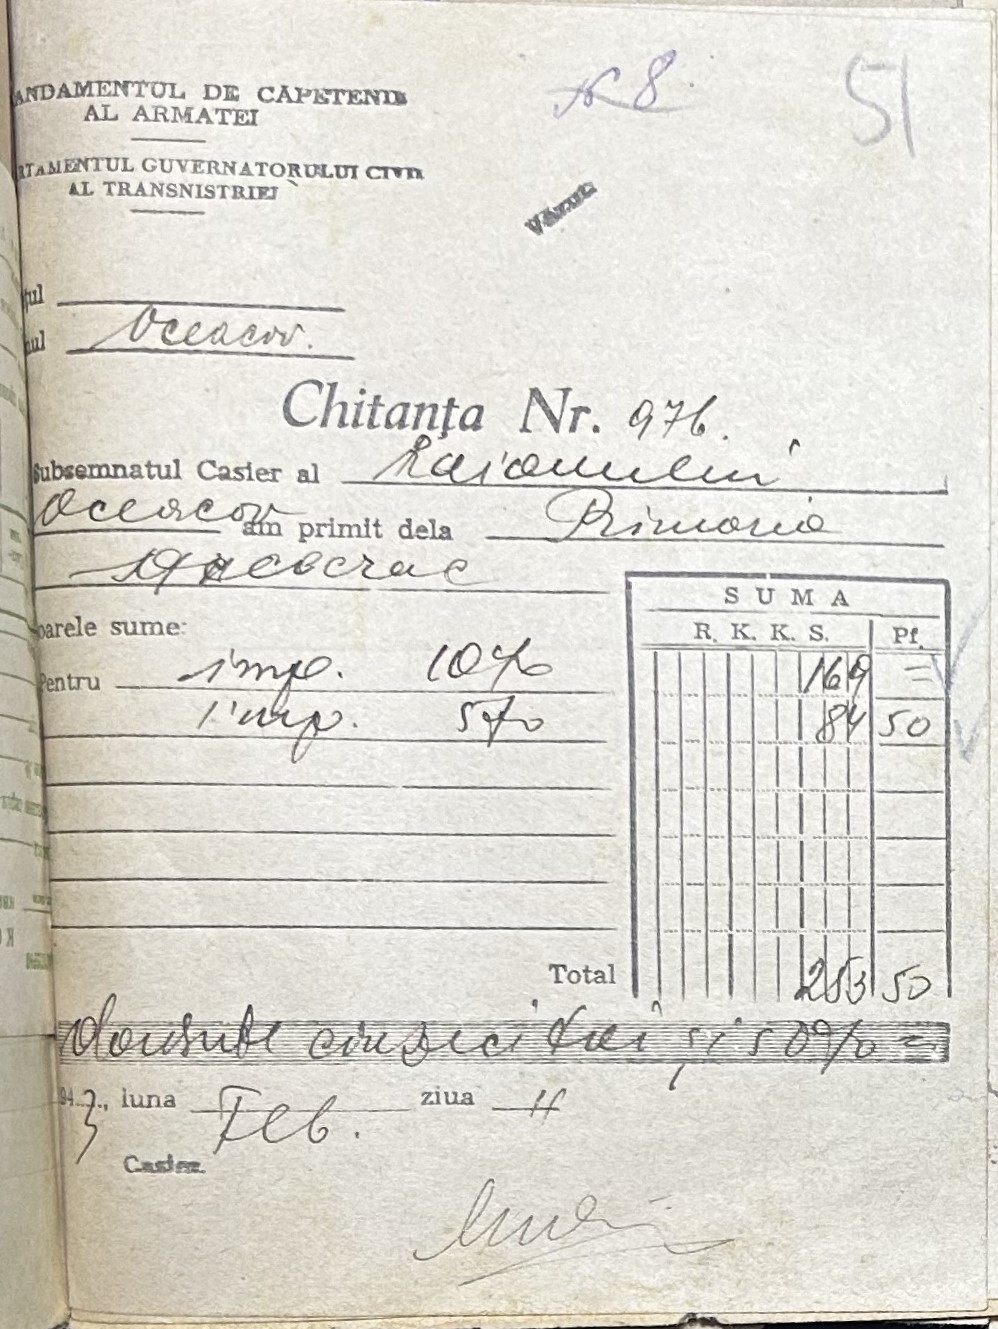 ANDAMENTUL DE CAPETENIE
AL ARMATEI
RTAMENTUL GUVERNATORULUI CIVIL
AL TRANSNISTRIEI
N 8
51
Văzut
țul
nul Oceacov.
Chitanța Nr. 976.
Subsemnatul Casier al Raionului
Oceacov am primit dela Primaria
oarele sume:
SUMA
R. K. K. S. Pf.
Pentru imp. 10% 169 =
imp. 5% 84 50
Total 253 50
douăsute cincizeci trei și 50% =
943, luna Feb. ziua 11
Casier